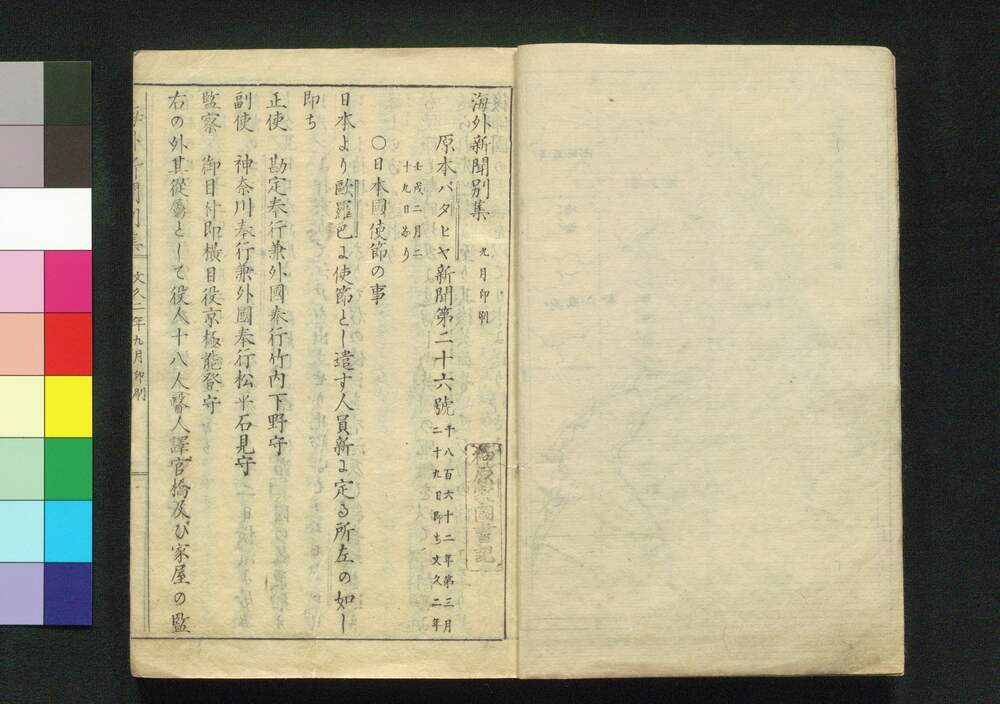 海外新聞別集 九月印刷
原本バタヒヤ新聞第二十六號 千八百六十二年第三月
二十九日即ち文久二年
壬戌二月二
十九日なり
○日本國使節の事
日本より歐羅巴に使節とし遣す人員新に定る所左の如し
即ち
正使 勘定奉行兼外國奉行竹内下野守
副使 神奈川奉行兼外國奉行松平石見守
監察 御目付即横目役京極能登守
右の外其從者として役人十八人醫人譯官橋及び家屋の監
海外新聞別集 文久二年九月印刷 一